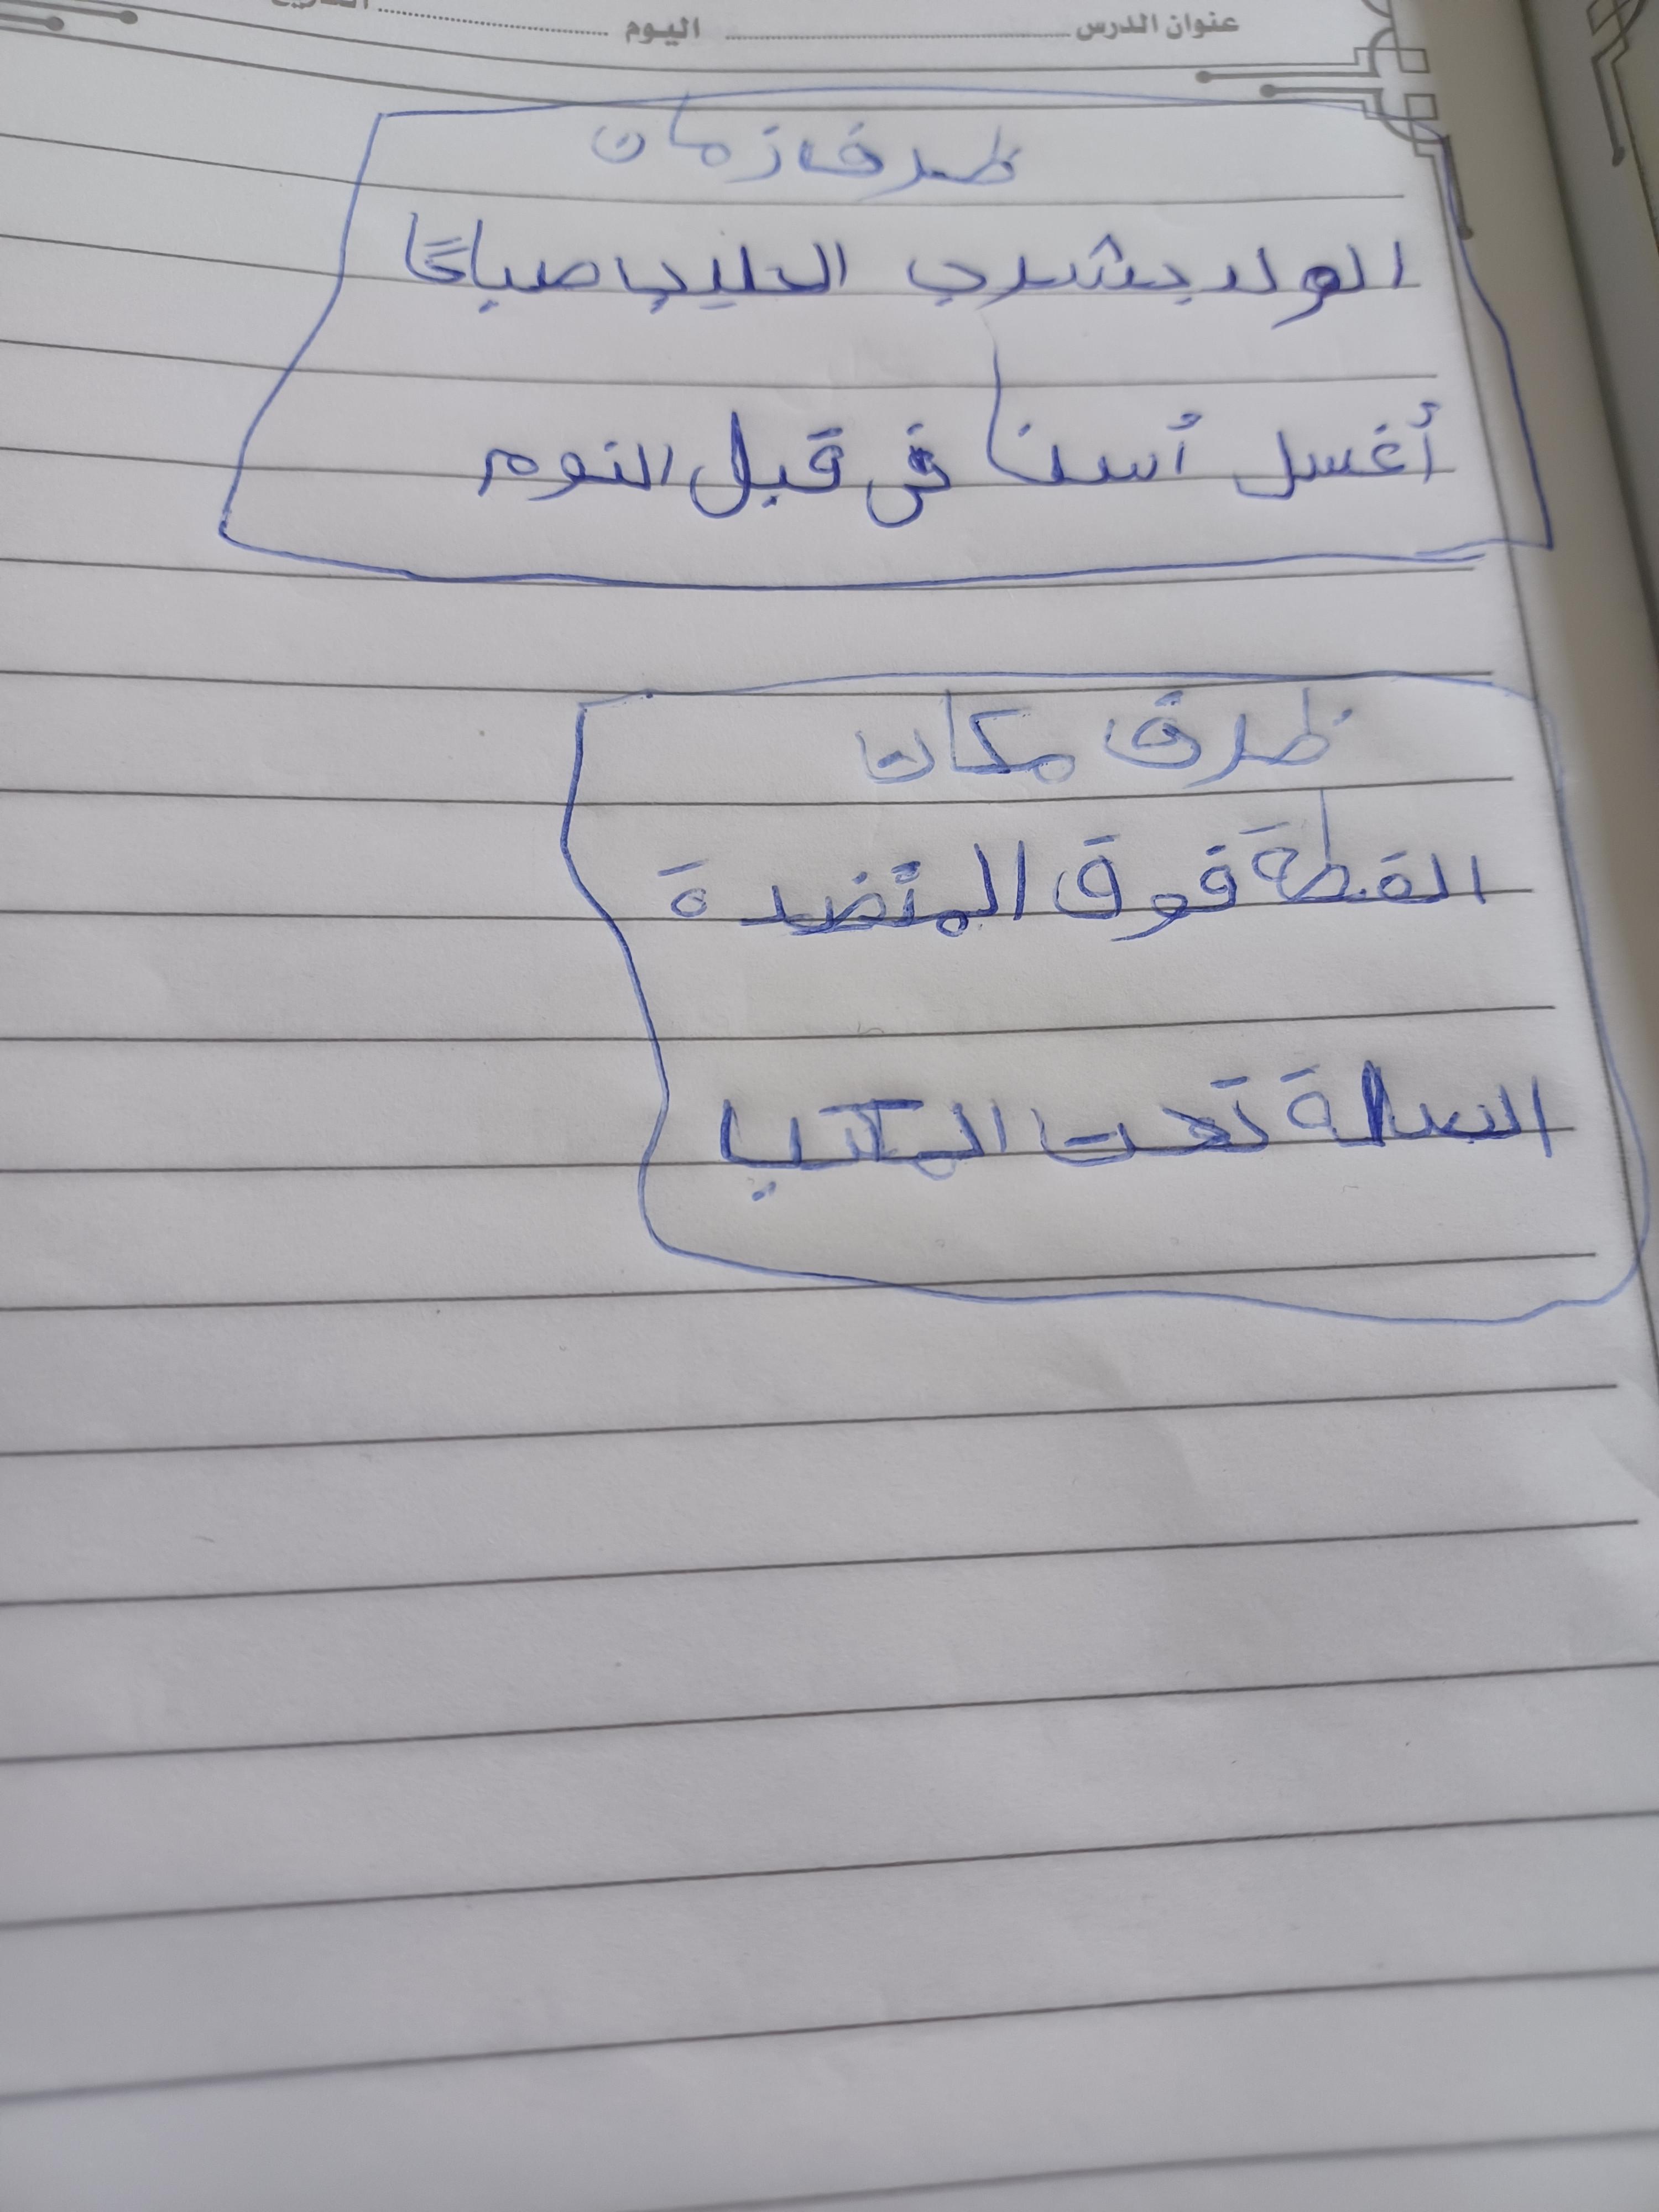 عنوان الدرس اليوم التاريخ
ظرف زمان
الولد يشرب الحليب صباحًا
أغسل أسناني قبل النوم
ظرف مكان
القطة فوق المنضدة
السلة تحت المكتب